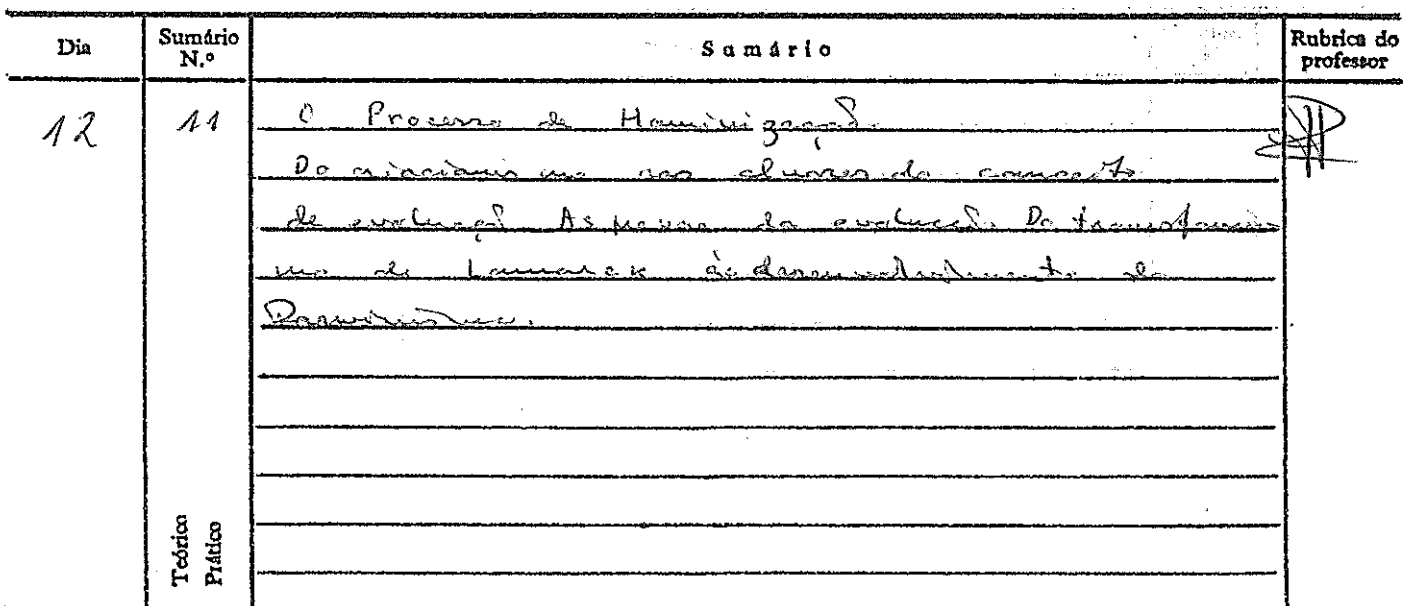 Dia Sumário N.º Sumário Rubrica do professor
12 11 O Processo de Hominização.
Do criacionismo aos alvores do conceito
de evolução. As provas da evolução. Do transformis
mo de Lamarck ao desenvolvimento do
Darwinismo.
Teórico
Prático